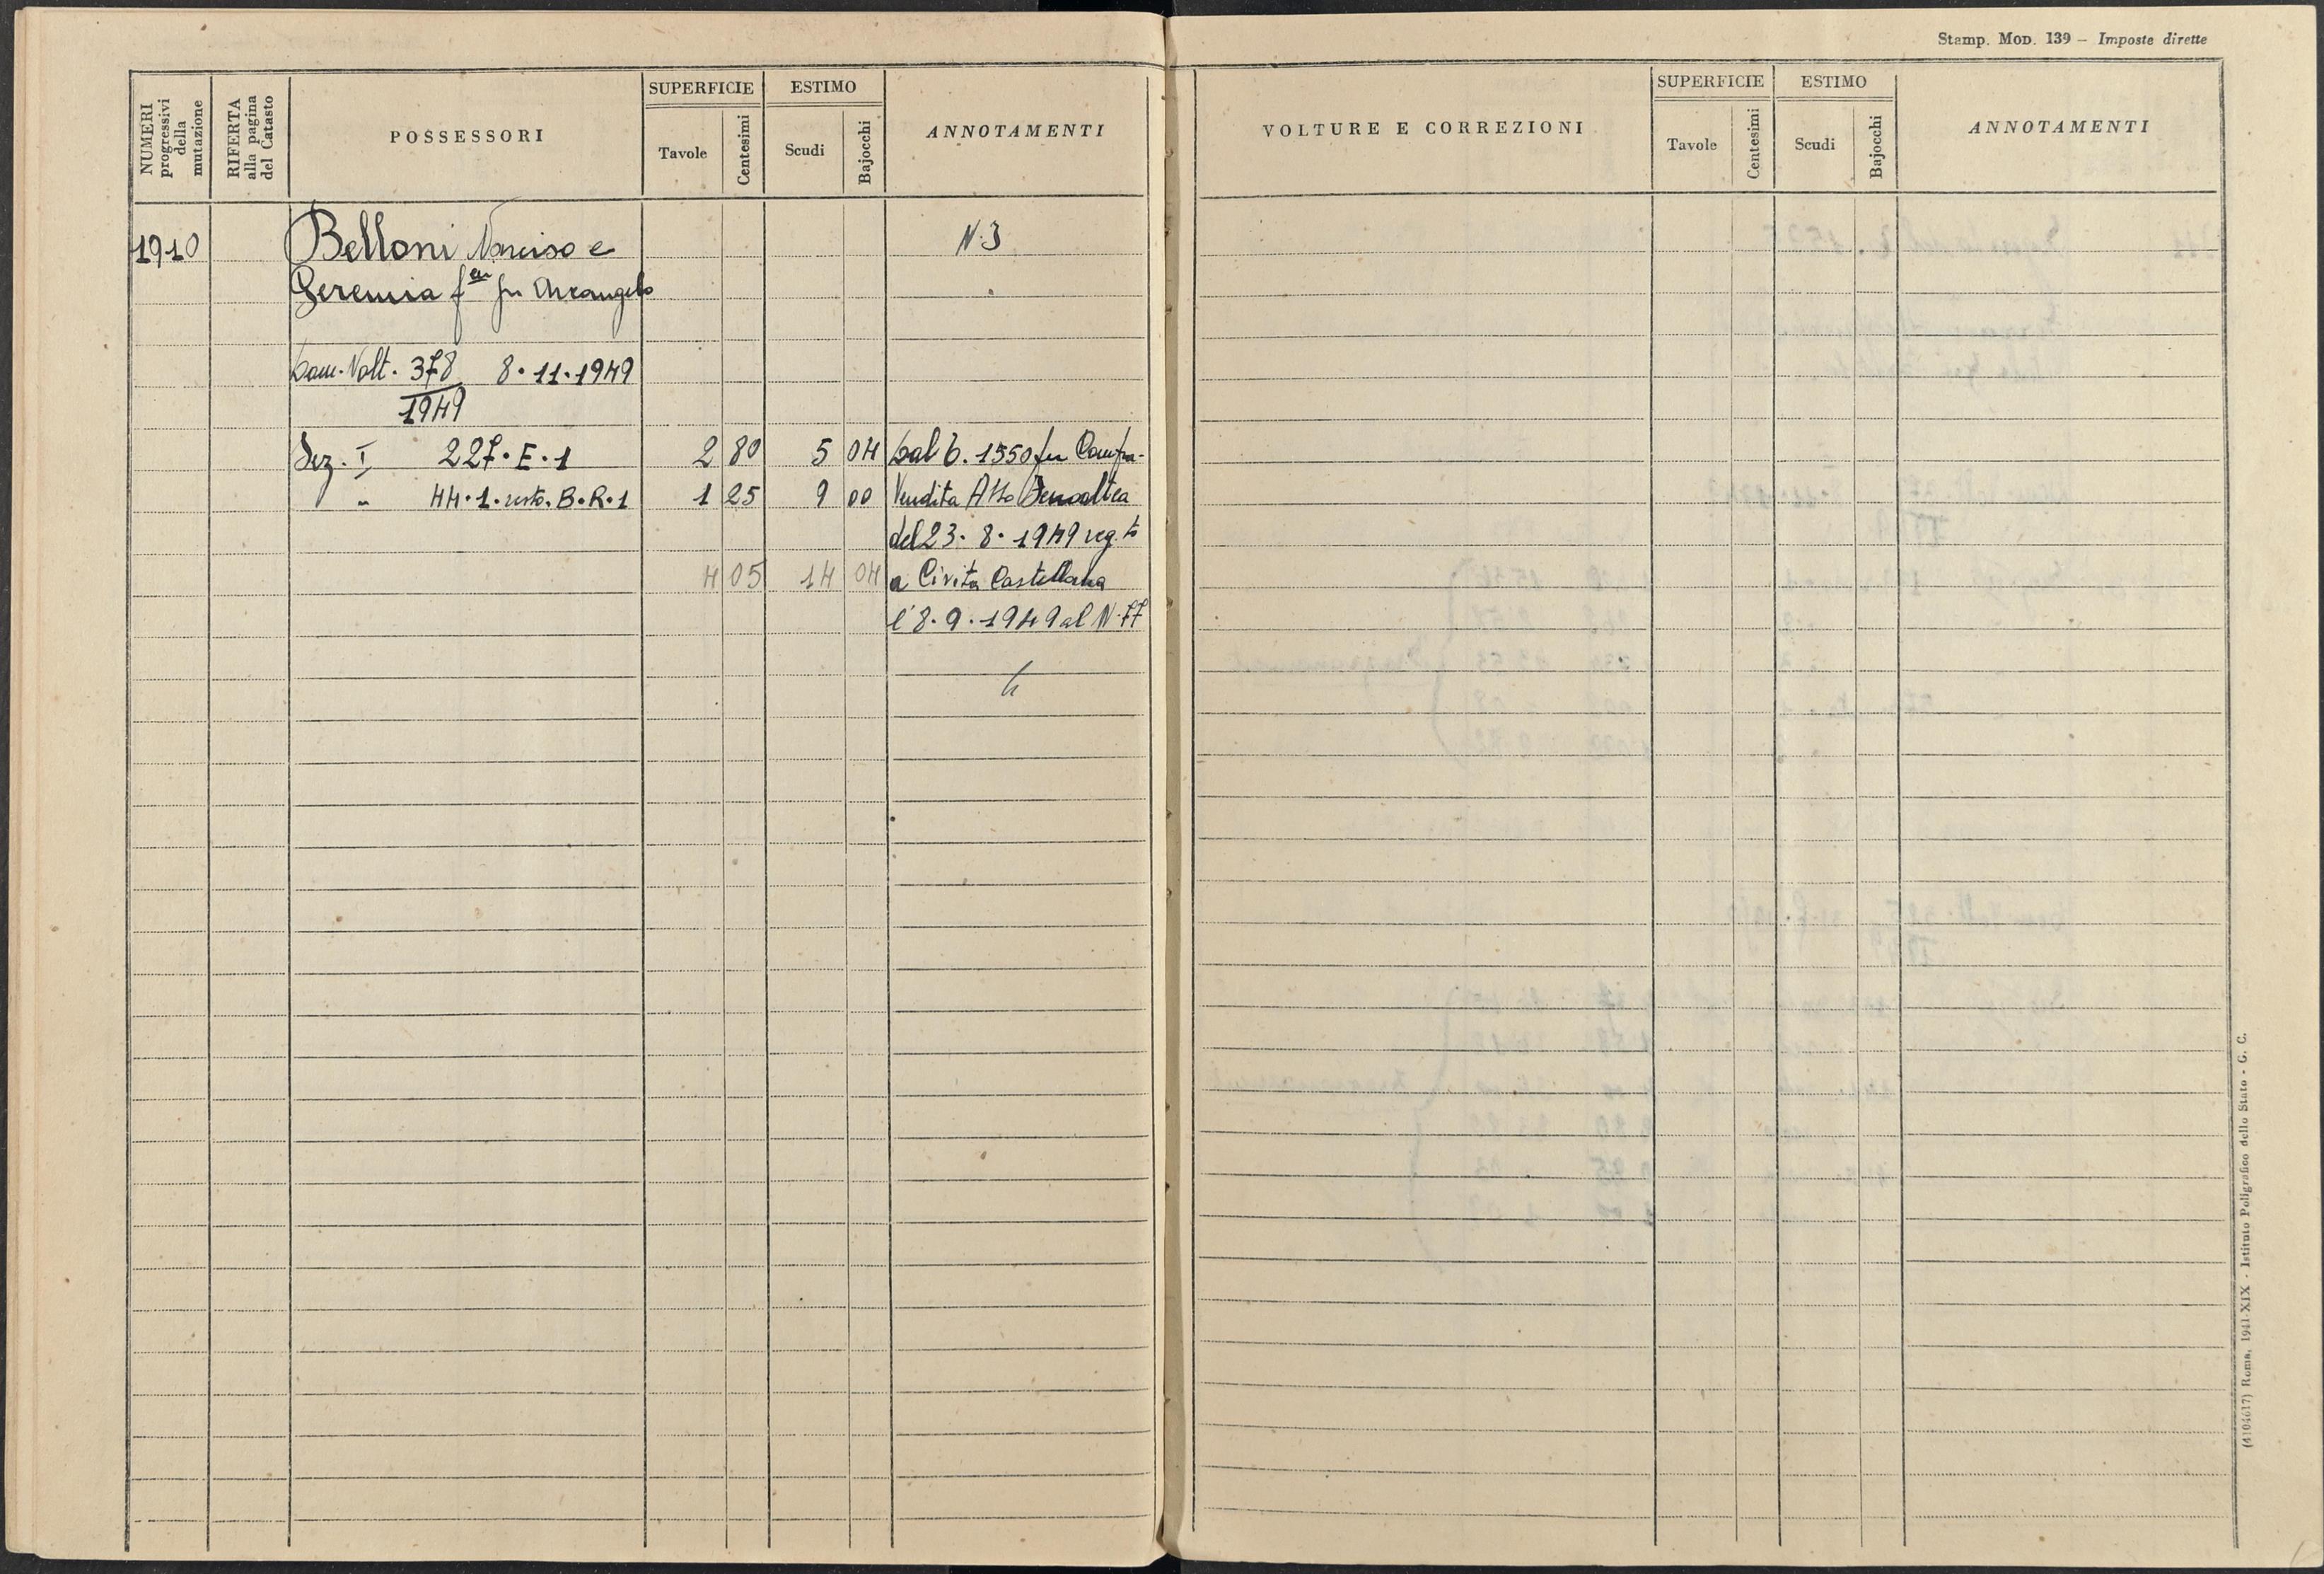 Stamp. Mod. 139 – Imposte dirette
NUMERI progressivi della mutazione
RIFERTA alla pagina del Catasto
POSSESSORI
SUPERFICIE
Tavole
Centesimi
ESTIMO
Scudi
Bajocchi
ANNOTAMENTI
VOLTURE E CORREZIONI
SUPERFICIE
Tavole
Centesimi
ESTIMO
Scudi
Bajocchi
ANNOTAMENTI
1910 Belloni Narciso e N. 3
Geremia f.lli fu Arcangelo
Dom. Volt. 378 8.11.1949
1949
Sez. I 227.E.1 2 80 5 04 Dal 6. 1550 per Compra-
" 44.1.resto.B.R.1 1 25 9 00 Vendita Atto
del 23.8.1949 reg.to
4 05 14 04 a Civita Castellana
l'8.9.1949 al N. 77
(4104617) Roma, 1941-XIX - Istituto Poligrafico dello Stato - G. C.